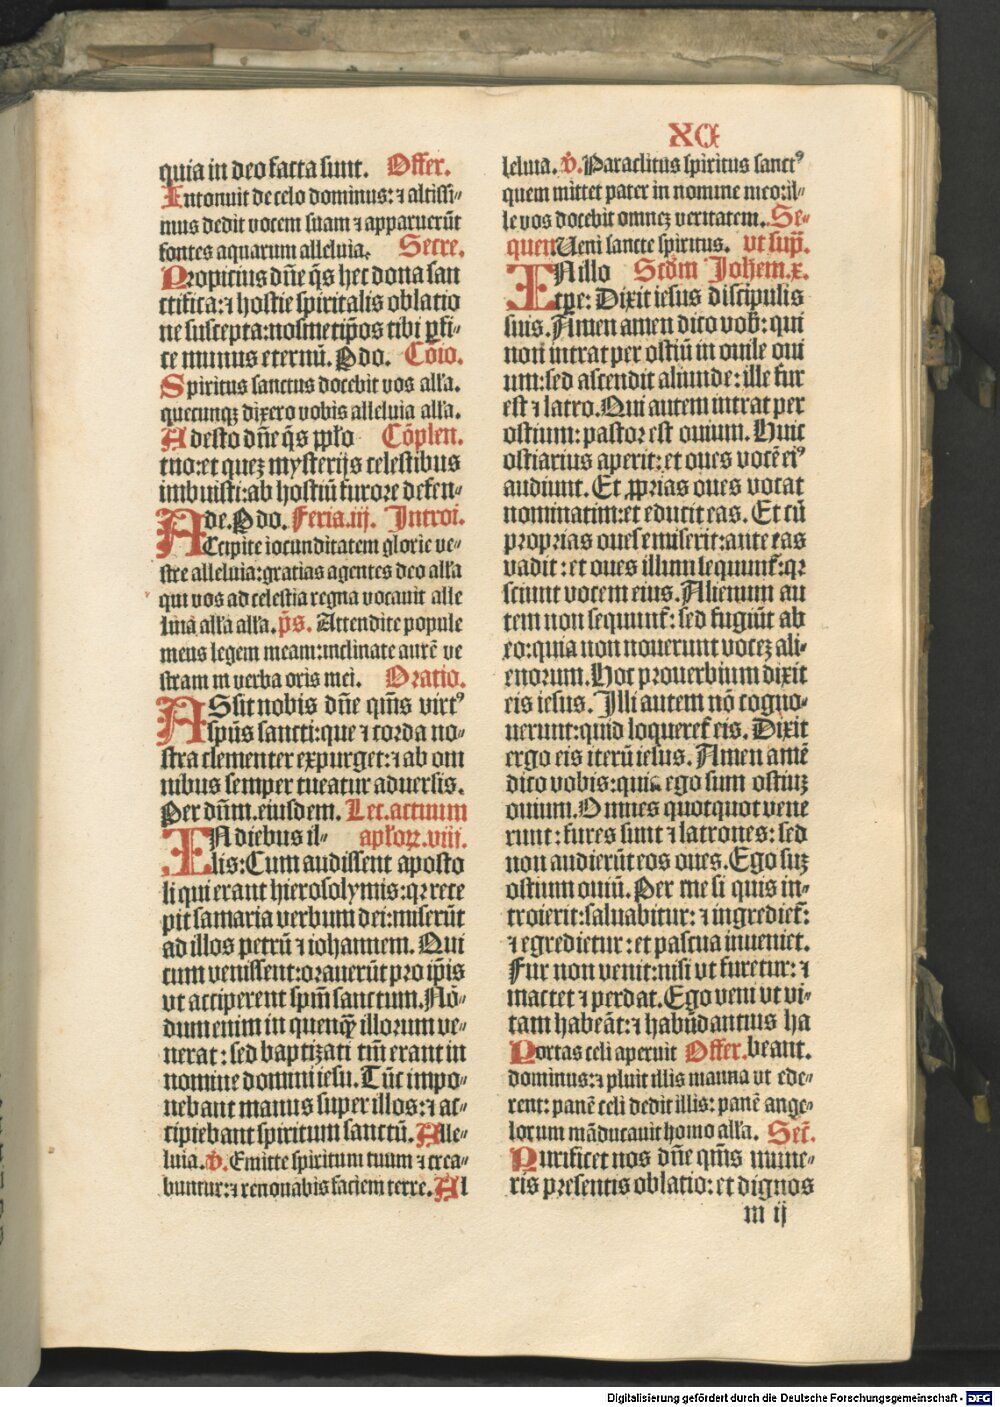 XCI
quia in deo facta sunt. Offer.
Intonuit de celo dominus: ⁊ altissi⸗
mus dedit vocem suam ⁊ apparuerūt
fontes aquarum alleluia. Secre.
Propicius dn̄e q̄s hec dona san
ctifica: ⁊ hostie spiritalis oblatio
ne suscepta: nosmetip̄os tibi ꝑfi⸗
ce munus eternū. Pdo. Cōio.
Spiritus sanctus docebit vos alľa.
quecunqꝫ dixero vobis alleluia alľa.
Adesto dn̄e q̄s ppľo Cōplen.
tuo: et queꝫ mysterijs celestibus
imbuisti: ab hostiū furore defen⸗
de. Pdo. Feria.iij. Introi.
ACcipite iocunditatem glorie ve⸗
stre alleluia: gratias agentes deo alľa
qui vos ad celestia regna vocauit alle
luia alľa alľa. p̄s. Attendite popule
meus legem meam: inclinate aurē ve
stram in verba oris mei. Oratio.
ASsit nobis dn̄e qm̄s virtꝰ
spūs sancti: que ⁊ corda no⸗
stra clementer expurget: ⁊ ab om
nibus semper tueatur aduersis.
Per dn̄m. eiusdem. Lec. actuum
IN diebus il⸗ apľoꝝ. viii.
lis: Cum audissent aposto
li qui erant hierosolymis: qꝛ rece
pit samaria verbum dei: miserūt
ad illos petrū ⁊ iohannem. Qui
cum venissent: orauerūt pro ip̄is
vt acciperent spm̄ sanctum. Nō⸗
dum enim in quenqꝫ illorum ve⸗
nerat: sed baptizati tm̄ erant in
nomine domini iesu. Tūc impo⸗
nebant manus super illos: ⁊ ac⸗
cipiebant spiritum sanctū. Alle⸗
luia. ꝟ. Emitte spiritum tuum ⁊ crea⸗
buntur: ⁊ renouabis faciem terre. Al
leluia. ꝟ. Paraclitus spiritus sanctꝰ
quem mittet pater in nomine meo: il⸗
le vos docebit omneꝫ veritatem. Se⸗
quen. Ueni sancte spiritus. vt sup̄.
IN illo Scdm Johem.x.
tꝑe: Dixit iesus discipulis
suis. Amen amen dico vob̄: qui
non intrat per ostiū in ouile oui
um: sed ascendit aliunde: ille fur
est ⁊ latro. Qui autem intrat per
ostium: pastor est ouium. Huic
ostiarius aperit: et oues vocē eiꝰ
audiunt. Et ꝓprias oues vocat
nominatim: et educit eas. Et cū
proprias oues emiserit: ante eas
vadit: et oues illum sequunt᷑: qꝛ
sciunt vocem eius. Alienum au
tem non sequunt᷑: sed fugiūt ab
eo: quia non nouerunt voceꝫ ali⸗
enorum. Hoc prouerbium dixit
eis iesus. Illi autem nō cogno⸗
uerunt: quid loqueret᷑ eis. Dixit
ergo eis iterū iesus. Amen amē
dico vobis: quia ego sum ostiuꝫ
ouium. Omnes quotquot vene
runt: fures sunt ⁊ latrones: sed
non audierūt eos oues. Ego suꝫ
ostium ouiū. Per me si quis in⸗
troierit: saluabitur: ⁊ ingrediet᷑:
⁊ egredietur: et pascua inueniet.
Fur non venit: nisi vt furetur: ⁊
mactet ⁊ perdat. Ego veni vt vi⸗
tam habeāt: ⁊ habūdantius ha
Portas celi aperuit Offer. beant.
dominus: ⁊ pluit illis manna vt ede⸗
rent: panē celi dedit illis: panē ange⸗
lorum māducauit homo alľa. Sec̄.
Purificet nos dn̄e qm̄s mune⸗
ris presentis oblatio: et dignos
m ij
Digitalisierung gefördert durch die Deutsche Forschungsgemeinschaft - DFG